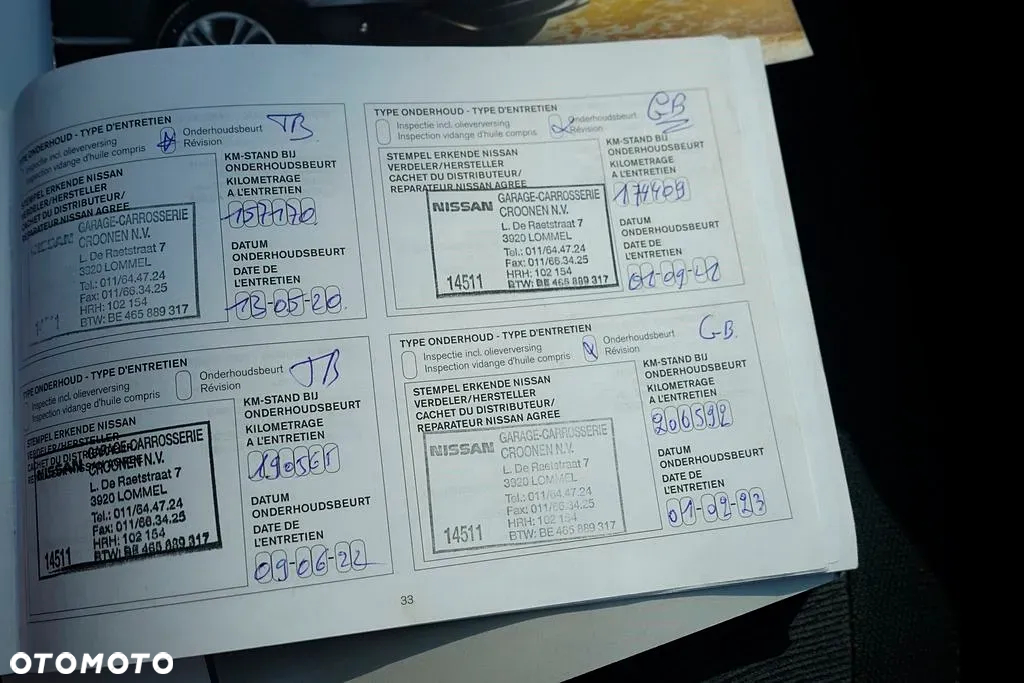 TYPE ONDERHOUD - TYPE D'ENTRETIEN
Inspectie incl. olieverversing
Inspection vidange d'huile compris
Onderhoudsbeurt
Révision
TB
STEMPEL ERKENDE NISSAN
VERDELER/HERSTELLER
CACHET DU DISTRIBUTEUR/
REPARATEUR NISSAN AGREE
NISSAN
GARAGE-CARROSSERIE
CROONEN N.V.
L. De Raetstraat 7
3920 LOMMEL
Tel.: 011/64.47.24
Fax: 011/66.34.25
HRH: 102 154
BTW: BE 465 889 317
KM-STAND BIJ
ONDERHOUDSBEURT
KILOMETRAGE
A L'ENTRETIEN
157170
DATUM
ONDERHOUDSBEURT
DATE DE
L'ENTRETIEN
13-05-20
TYPE ONDERHOUD - TYPE D'ENTRETIEN
Inspectie incl. olieverversing
Inspection vidange d'huile compris
Onderhoudsbeurt
Révision
GB
STEMPEL ERKENDE NISSAN
VERDELER/HERSTELLER
CACHET DU DISTRIBUTEUR/
REPARATEUR NISSAN AGREE
NISSAN
GARAGE-CARROSSERIE
CROONEN N.V.
L. De Raetstraat 7
3920 LOMMEL
Tel.: 011/64.47.24
Fax: 011/66.34.25
HRH: 102 154
BTW: BE 465 889 317
14511
KM-STAND BIJ
ONDERHOUDSBEURT
KILOMETRAGE
A L'ENTRETIEN
174409
DATUM
ONDERHOUDSBEURT
DATE DE
L'ENTRETIEN
TYPE ONDERHOUD - TYPE D'ENTRETIEN
Inspectie incl. olieverversing
Inspection vidange d'huile compris
Onderhoudsbeurt
Révision
TB
STEMPEL ERKENDE NISSAN
VERDELER/HERSTELLER
NISSAN
GARAGE-CARROSSERIE
CROONEN N.V.
L. De Raetstraat 7
3920 LOMMEL
Tel.: 011/64.47.24
Fax: 011/66.34.25
HRH: 102 154
BTW: BE 465 889 317
14511
KM-STAND BIJ
ONDERHOUDSBEURT
KILOMETRAGE
A L'ENTRETIEN
190565
DATUM
ONDERHOUDSBEURT
DATE DE
L'ENTRETIEN
09-06-22
TYPE ONDERHOUD - TYPE D'ENTRETIEN
Inspectie incl. olieverversing
Inspection vidange d'huile compris
Onderhoudsbeurt
Révision
GB.
STEMPEL ERKENDE NISSAN
VERDELER/HERSTELLER
CACHET DU DISTRIBUTEUR/
REPARATEUR NISSAN AGREE
NISSAN
GARAGE-CARROSSERIE
CROONEN N.V.
L. De Raetstraat 7
3920 LOMMEL
Tel.: 011/64.47.24
Fax: 011/66.34.25
HRH: 102 154
BTW: BE 465 889 317
14511
KM-STAND BIJ
ONDERHOUDSBEURT
KILOMETRAGE
A L'ENTRETIEN
206592
DATUM
ONDERHOUDSBEURT
DATE DE
L'ENTRETIEN
01-02-23
33
OTOMOTO